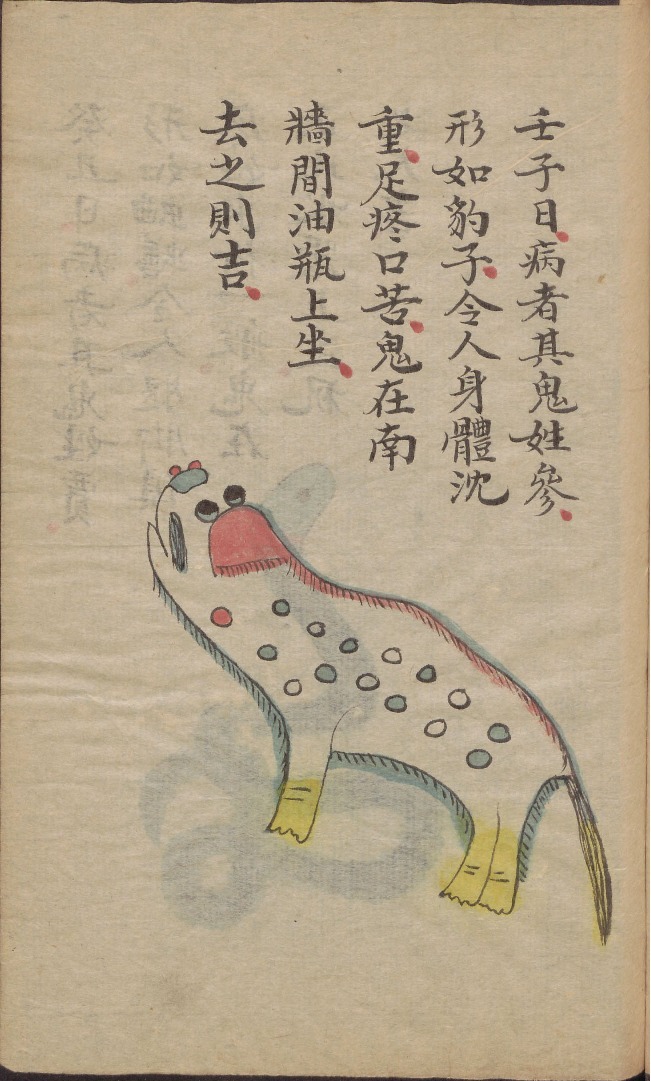 壬子日病者其鬼姓參
形如豹子令人身體沈
重足疼口苦鬼在南
牆間油瓶上坐
去之則吉